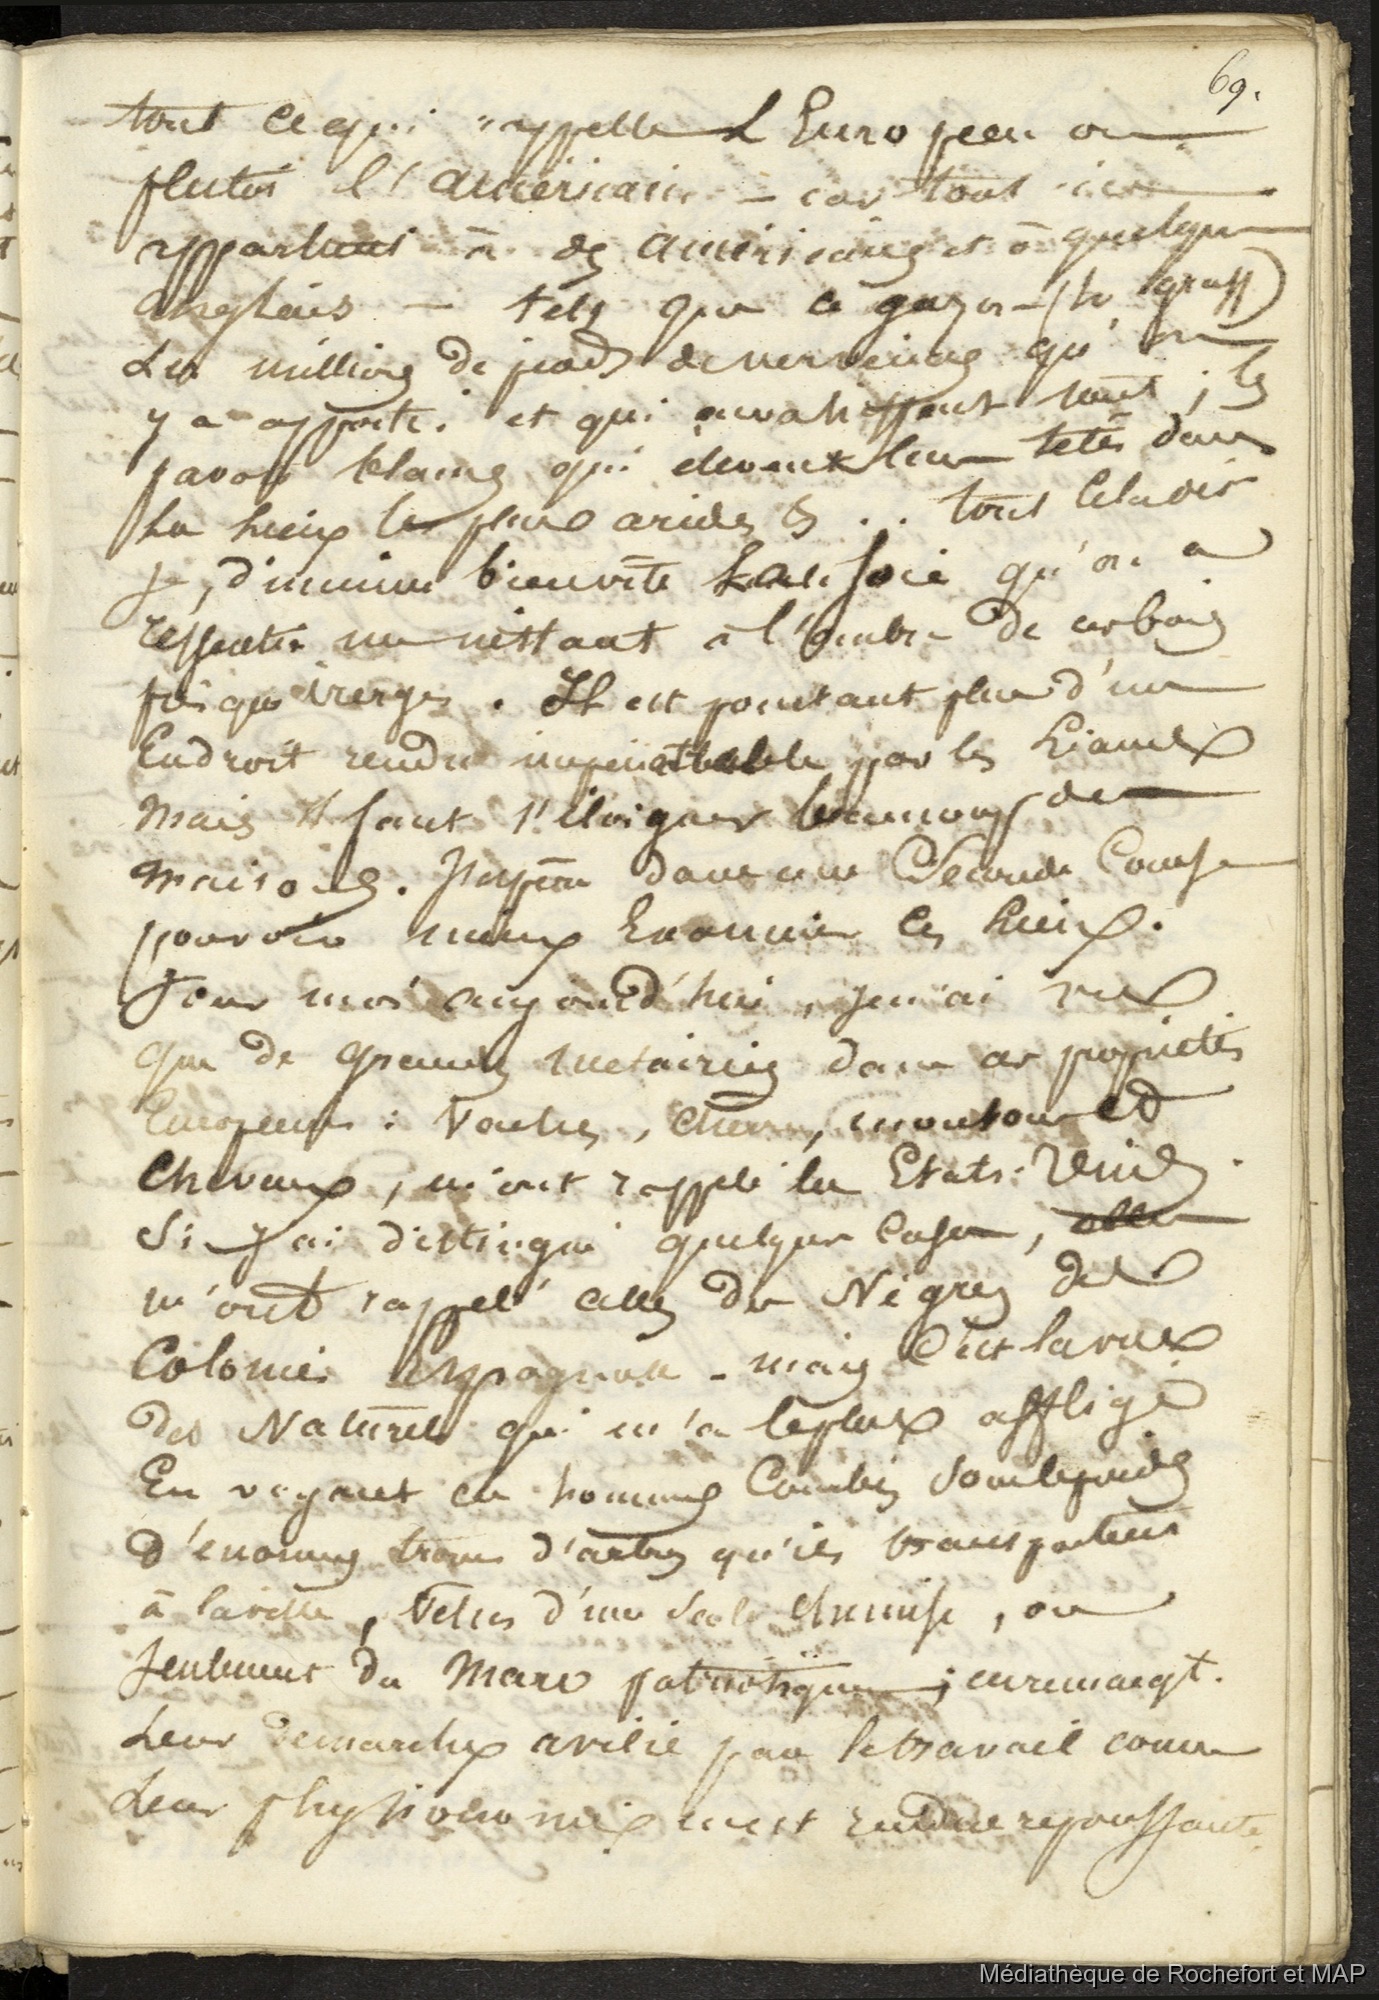 69.
tout ce qui rappelle L'Européen ou
plutôs l'américain – car tout ici
appartient à des américains et à quelque
anglais – tels que ce gazon – (the grass)
Les milliers de pieds de verveines qu'on
y a apporté. et qui envahissent tout ; les
pavots blancs qui élevent leur tetes dans
les Lieux les plus arides &.. tout cela dis
je, diminue bien vite la joie qu'on a
ressentie en mettant à l'ombre de ces bois
presque vierges. Il est pourtant plus d'un
Endroit rendu impénétrable par les Lianes
Mais il faut s'éloigner beaucoup des
maisons. J'espère dans une Seconde Course
pouvoir mieux Examiner ces Lieux.
Pour moi aujourd'hui, je n'ai vu
que de grandes metairies dans ces propriétés
Européennes : Vaches, chevres, moutons et
Chevaux, m'ont rappelé les Etats-Unis.
Si j'ai distingué quelques cases, elles
m'ont rappelé celles des Négres des
Colonies Espagnoles – mais c'est la vue
des Naturels qui m'a le plus affligé
En voyant ces hommes Courbés sous le poids
d'enormes troncs d'arbres qu'ils transportent
à la ville, Vetus d'une seule chemise, ou
seulement du Maro patriotique ; en remarqt.
Leur demarche avilie par le travail comme
Leur physionomie en est rendue repoussante
Médiathèque de Rochefort et MAP